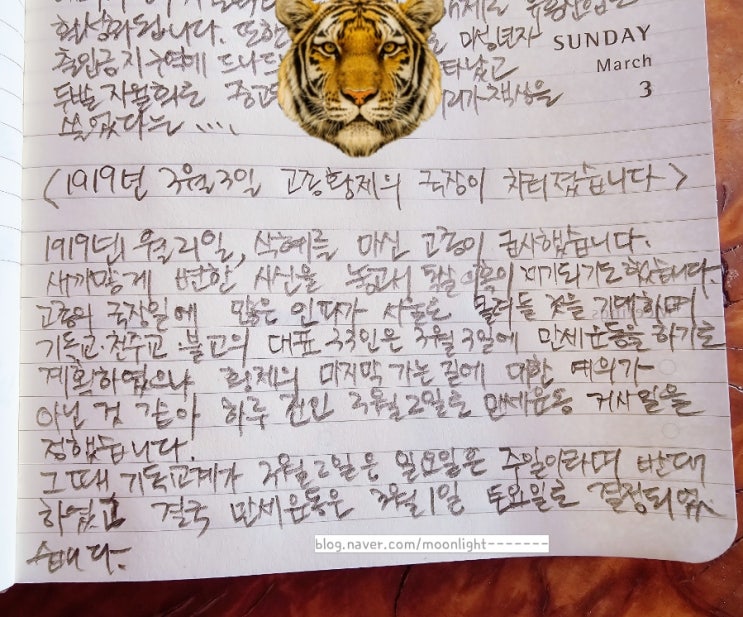 활성화됩니다. 또한 미성년자
SUNDAY
출입금지구역에 드나드 타났고
March
두발자율화를 중고등 책상을
3
쓸었다는 ....
<1919년 3월 3일 고종황제의 국장이 차려졌습니다>
1919년 1월 21일, 식혜를 마신 고종이 급사했습니다.
새까맣게 변한 시신을 놓고서 독살의혹이 제기되기도 했습니다.
고종의 국장일에 많은 인파가 서울로 몰려들 것을 기대하며
기독교·천주교·불교의 대표 33인은 3월 3일에 만세운동을 하기로
계획하였으나 황제의 마지막 가는 길에 대한 예의가
아닌 것 같아 하루 전인 3월 2일로 만세운동 거사일을
정했습니다.
그때 기독교계가 3월 2일은 일요일은 주일이라며 반대
하였고 결국 만세운동은 3월 1일 토요일로 결정되었
습니다.
blog.naver.com/moonlight-------